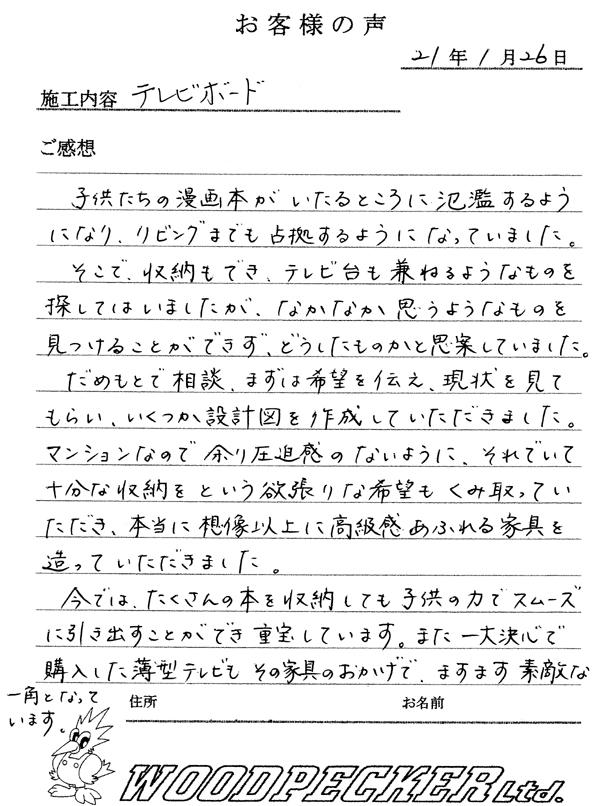 お客様の声
21年1月26日
施工内容 テレビボード
ご感想
子供たちの漫画本がいたるところに氾濫するよう
になり、リビングまでも占拠するようになっていました。
そこで、収納もでき、テレビ台も兼ねるようなものを
探してはいましたが、なかなか思うようなものを
見つけることができず、どうしたものかと思案していました。
だめもとで相談、まずは希望を伝え、現状を見て
もらい、いくつか設計図を作成していただきました。
マンションなので余り圧迫感のないように、それでいて
十分な収納をという欲張りな希望もくみ取ってい
ただき、本当に想像以上に高級感あふれる家具を
造っていただきました。
今では、たくさんの本を収納しても子供の力でスムーズ
に引き出すことができ重宝しています。また一大決心で
購入した薄型テレビもその家具のおかげで、ますます素敵な
一角となって
います。
住所 お名前
WOODPECKER Ltd.